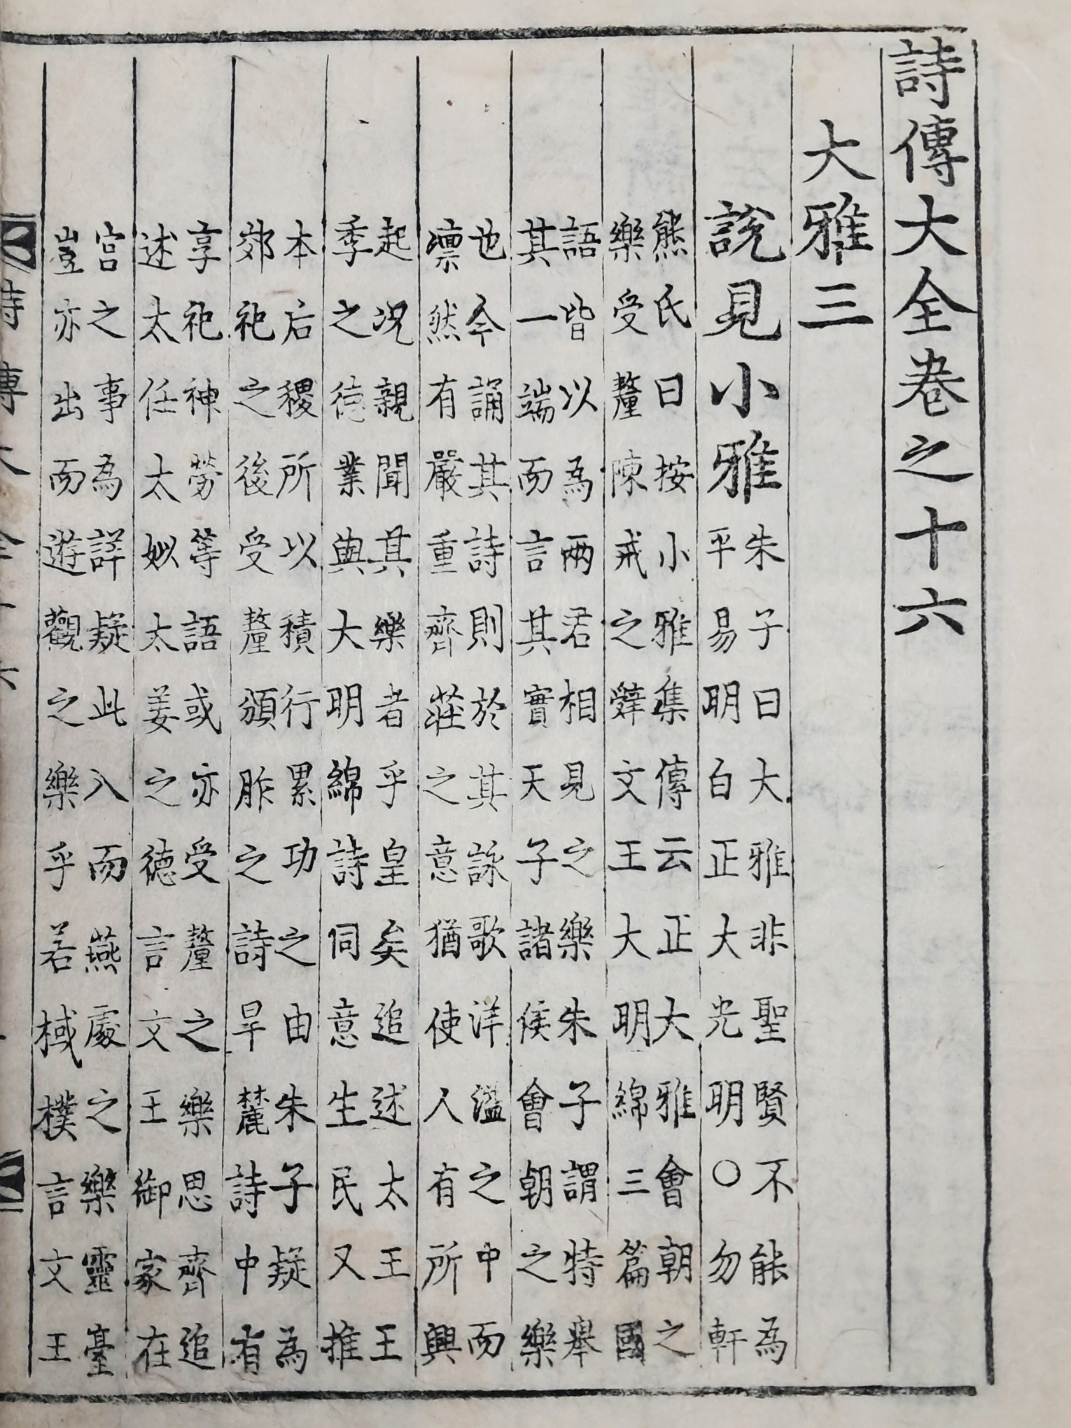 詩傳大全卷之十六
大雅三
說見小雅
朱子曰大雅非聖賢不能為
平易明白正大光明○勿軒
熊氏曰按小雅集傳云正大雅會朝之
樂受釐陳戒之辭文王大明綿三篇國
語皆以為兩君相見之樂朱子謂特舉
其一端而言其實天子諸侯會朝之樂
也今誦其詩則於其詠歌洋溢之中而
凛然有嚴重齊莊之意猶使人有所興
起况親聞其樂者乎皇矣追述太王王
季之德業與大明綿詩同意生民又推
本后稷所以積行累功之由朱子疑為
郊祀之後受釐頒胙之詩旱麓詩中有
享祀神勞等語或亦受釐之樂思齊追
述太任太姒太姜之德言文王御家在
宫之事為詳疑此入而燕處之樂靈臺
豈亦出而遊觀之樂乎若棫樸言文王
詩傳大全十六